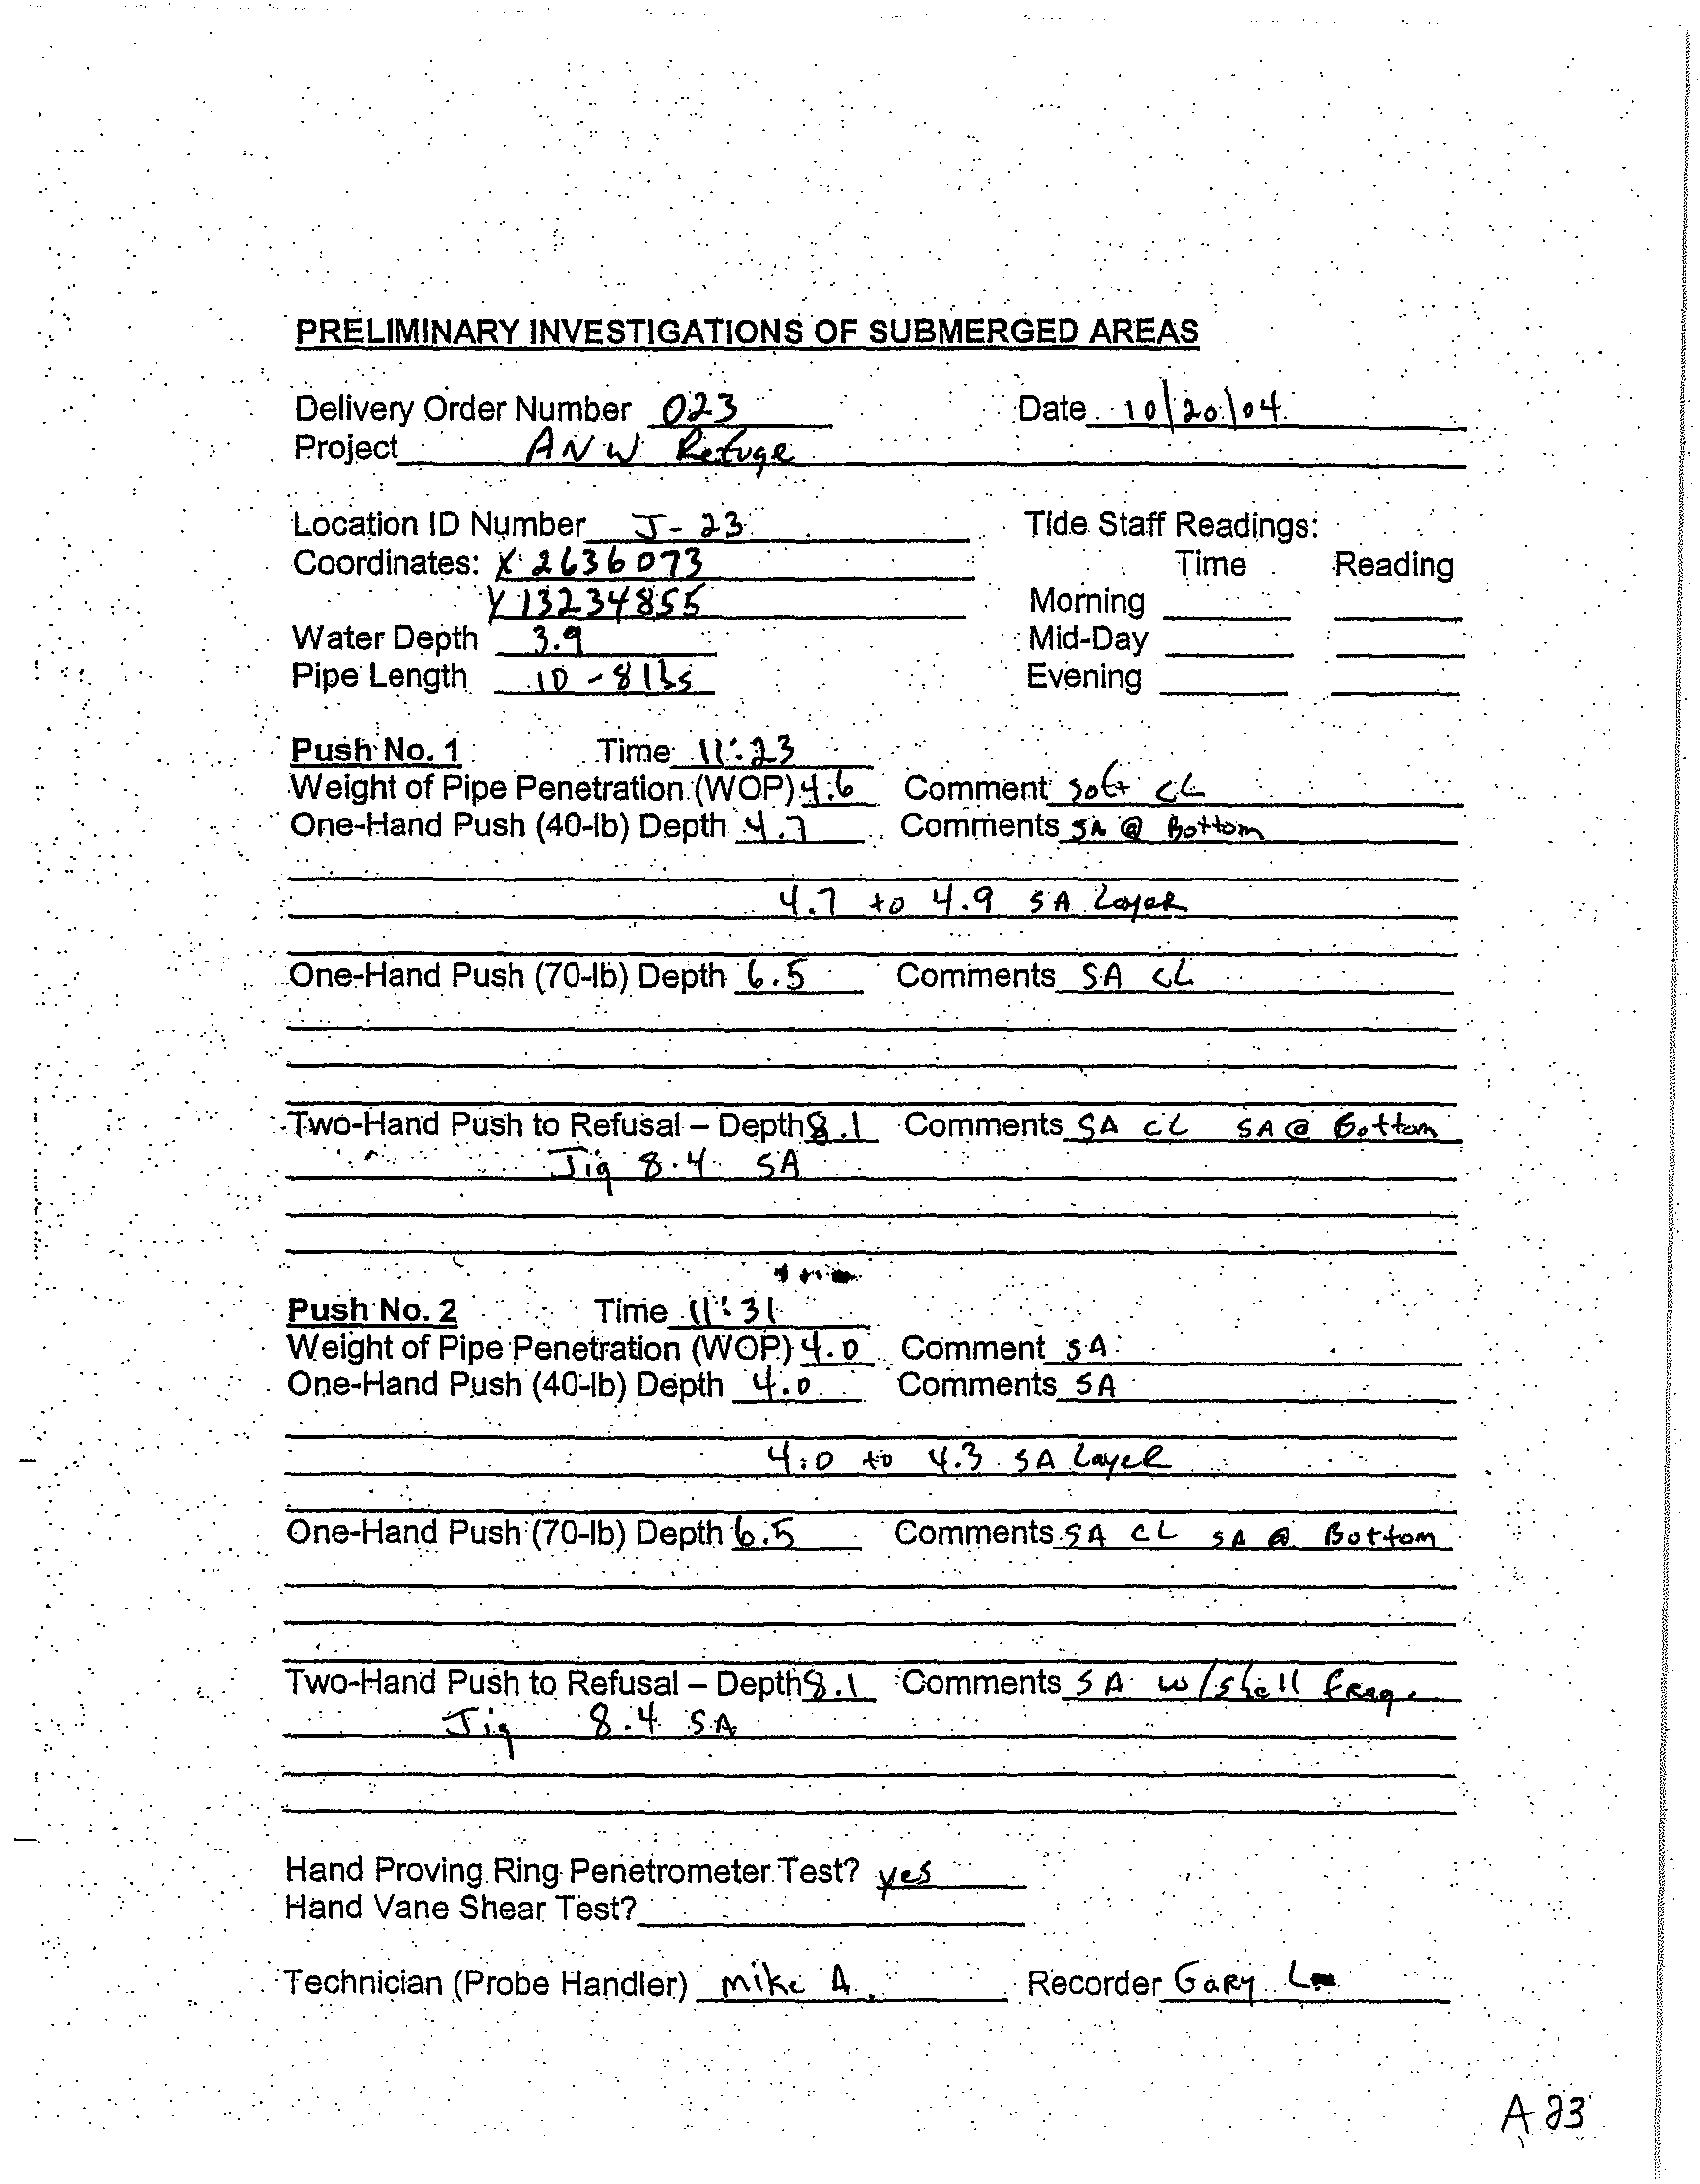 PRELIMINARY INVESTIGATIONS OF SUBMERGED AREAS
Delivery Order Number 023 Date 10/20/04
Project ANW Refuge
Location ID Number J-23 Tide Staff Readings:
Coordinates: X 2636073 Time Reading
Y 13234855 Morning
Water Depth 3.9 Mid-Day
Pipe Length 10 - 8 lbs Evening
Push No. 1 Time 11:23
Weight of Pipe Penetration (WOP) 4.6 Comment soft CL
One-Hand Push (40-lb) Depth 4.7 Comments SA @ Bottom
4.7 to 4.9 SA Layer
One-Hand Push (70-lb) Depth 6.5 Comments SA CL
Two-Hand Push to Refusal – Depth 8.1 Comments SA CL SA @ Bottom
Jig 8.4 SA
Push No. 2 Time 11:31
Weight of Pipe Penetration (WOP) 4.0 Comment SA
One-Hand Push (40-lb) Depth 4.0 Comments SA
4.0 to 4.3 SA Layer
One-Hand Push (70-lb) Depth 6.5 Comments SA CL SA @ Bottom
Two-Hand Push to Refusal – Depth 8.1 Comments SA w/shell frag.
Jig 8.4 SA
Hand Proving Ring Penetrometer Test? yes
Hand Vane Shear Test?
Technician (Probe Handler) Mike A. Recorder Gary
A 23